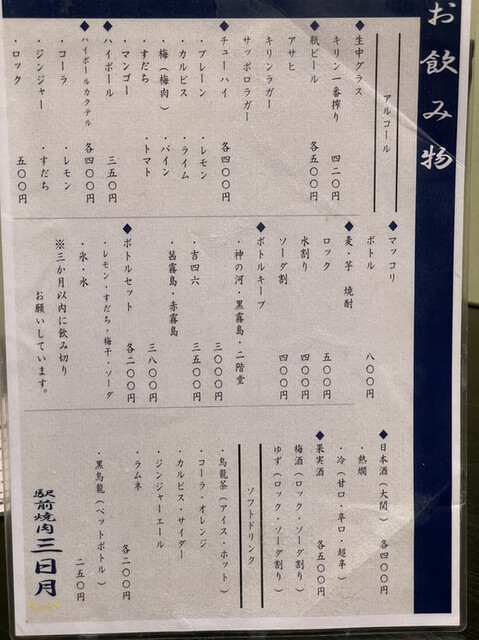 お飲み物
アルコール
◆生中グラス
キリン一番搾り 四二〇円
◆瓶ビール 各五〇〇円
アサヒ
キリンラガー
サッポロラガー
◆チューハイ 各四〇〇円
・プレーン ・レモン
・カルピス ・ライム
・梅（梅肉） ・パイン
・すだち ・トマト
・マンゴー
◆ハイボール 三五〇円
◆ハイボールカクテル 各四〇〇円
・コーラ ・レモン
・ジンジャー ・すだち
・ロック 五〇〇円
◆マッコリ
ボトル 八〇〇円
◆麦・芋 焼酎
ロック 五〇〇円
水割り 四〇〇円
ソーダ割 四〇〇円
◆ボトルキープ
・神の河・黒霧島・二階堂
三〇〇〇円
・吉四六 三五〇〇円
・茜霧島・赤霧島
三八〇〇円
◆ボトルセット 各二〇〇円
・レモン・すだち・梅干・ソーダ
・氷・水
※三か月以内に飲み切り
お願いしています。
◆日本酒（大関） 各四〇〇円
・熱燗
・冷（甘口・辛口・超辛）
◆果実酒 各五〇〇円
梅酒（ロック・ソーダ割り）
ゆず（ロック・ソーダ割り）
ソフトドリンク
・烏龍茶（アイス・ホット）
・コーラ・オレンジ
・カルピス・サイダー
・ジンジャーエール
・ラムネ 各二〇〇円
・黒烏龍（ペットボトル）
二五〇円
駅前焼肉 三日月